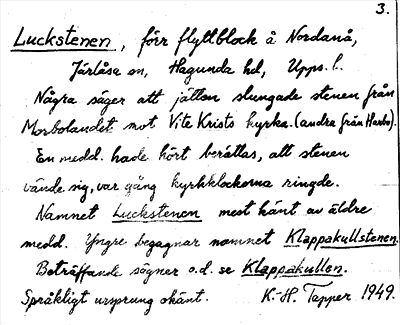 3.
Luckstenen, förr flyttblock å Nordanå,
Järlåsa sn, Hagunda hd, Upps. l.
Några säger att jätten slungade stenen från
Morbolandet mot Vite Krists kyrka. (andra från Harbo).
En medd. hade hört berättas, att stenen
vände sig, var gång kyrkklockorna ringde.
Namnet Luckstenen mest känt av äldre
medd. Yngre begagnar namnet Klappakullstenen.
Beträffande sägner o.d. se Klappakullen.
Språkligt ursprung okänt. K.-H. Tapper 1949.